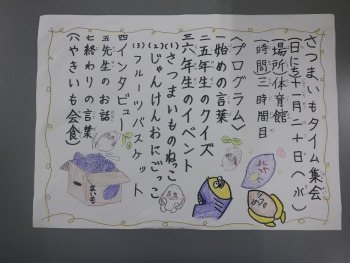 さつまいもタイム集会
(日にち)十一月二十日(水)
(場所)体育館
(時間)三時間目
〈プログラム〉
一始めの言葉
二五年生のクイズ
三六年生のイベント
(1)さつまいものねっこ
(2)じゃんけんおにごっこ
(3)フルーツバスケット
四インタビュー
五先生のお話
七終わりの言葉
(やきいも会食)
まいも